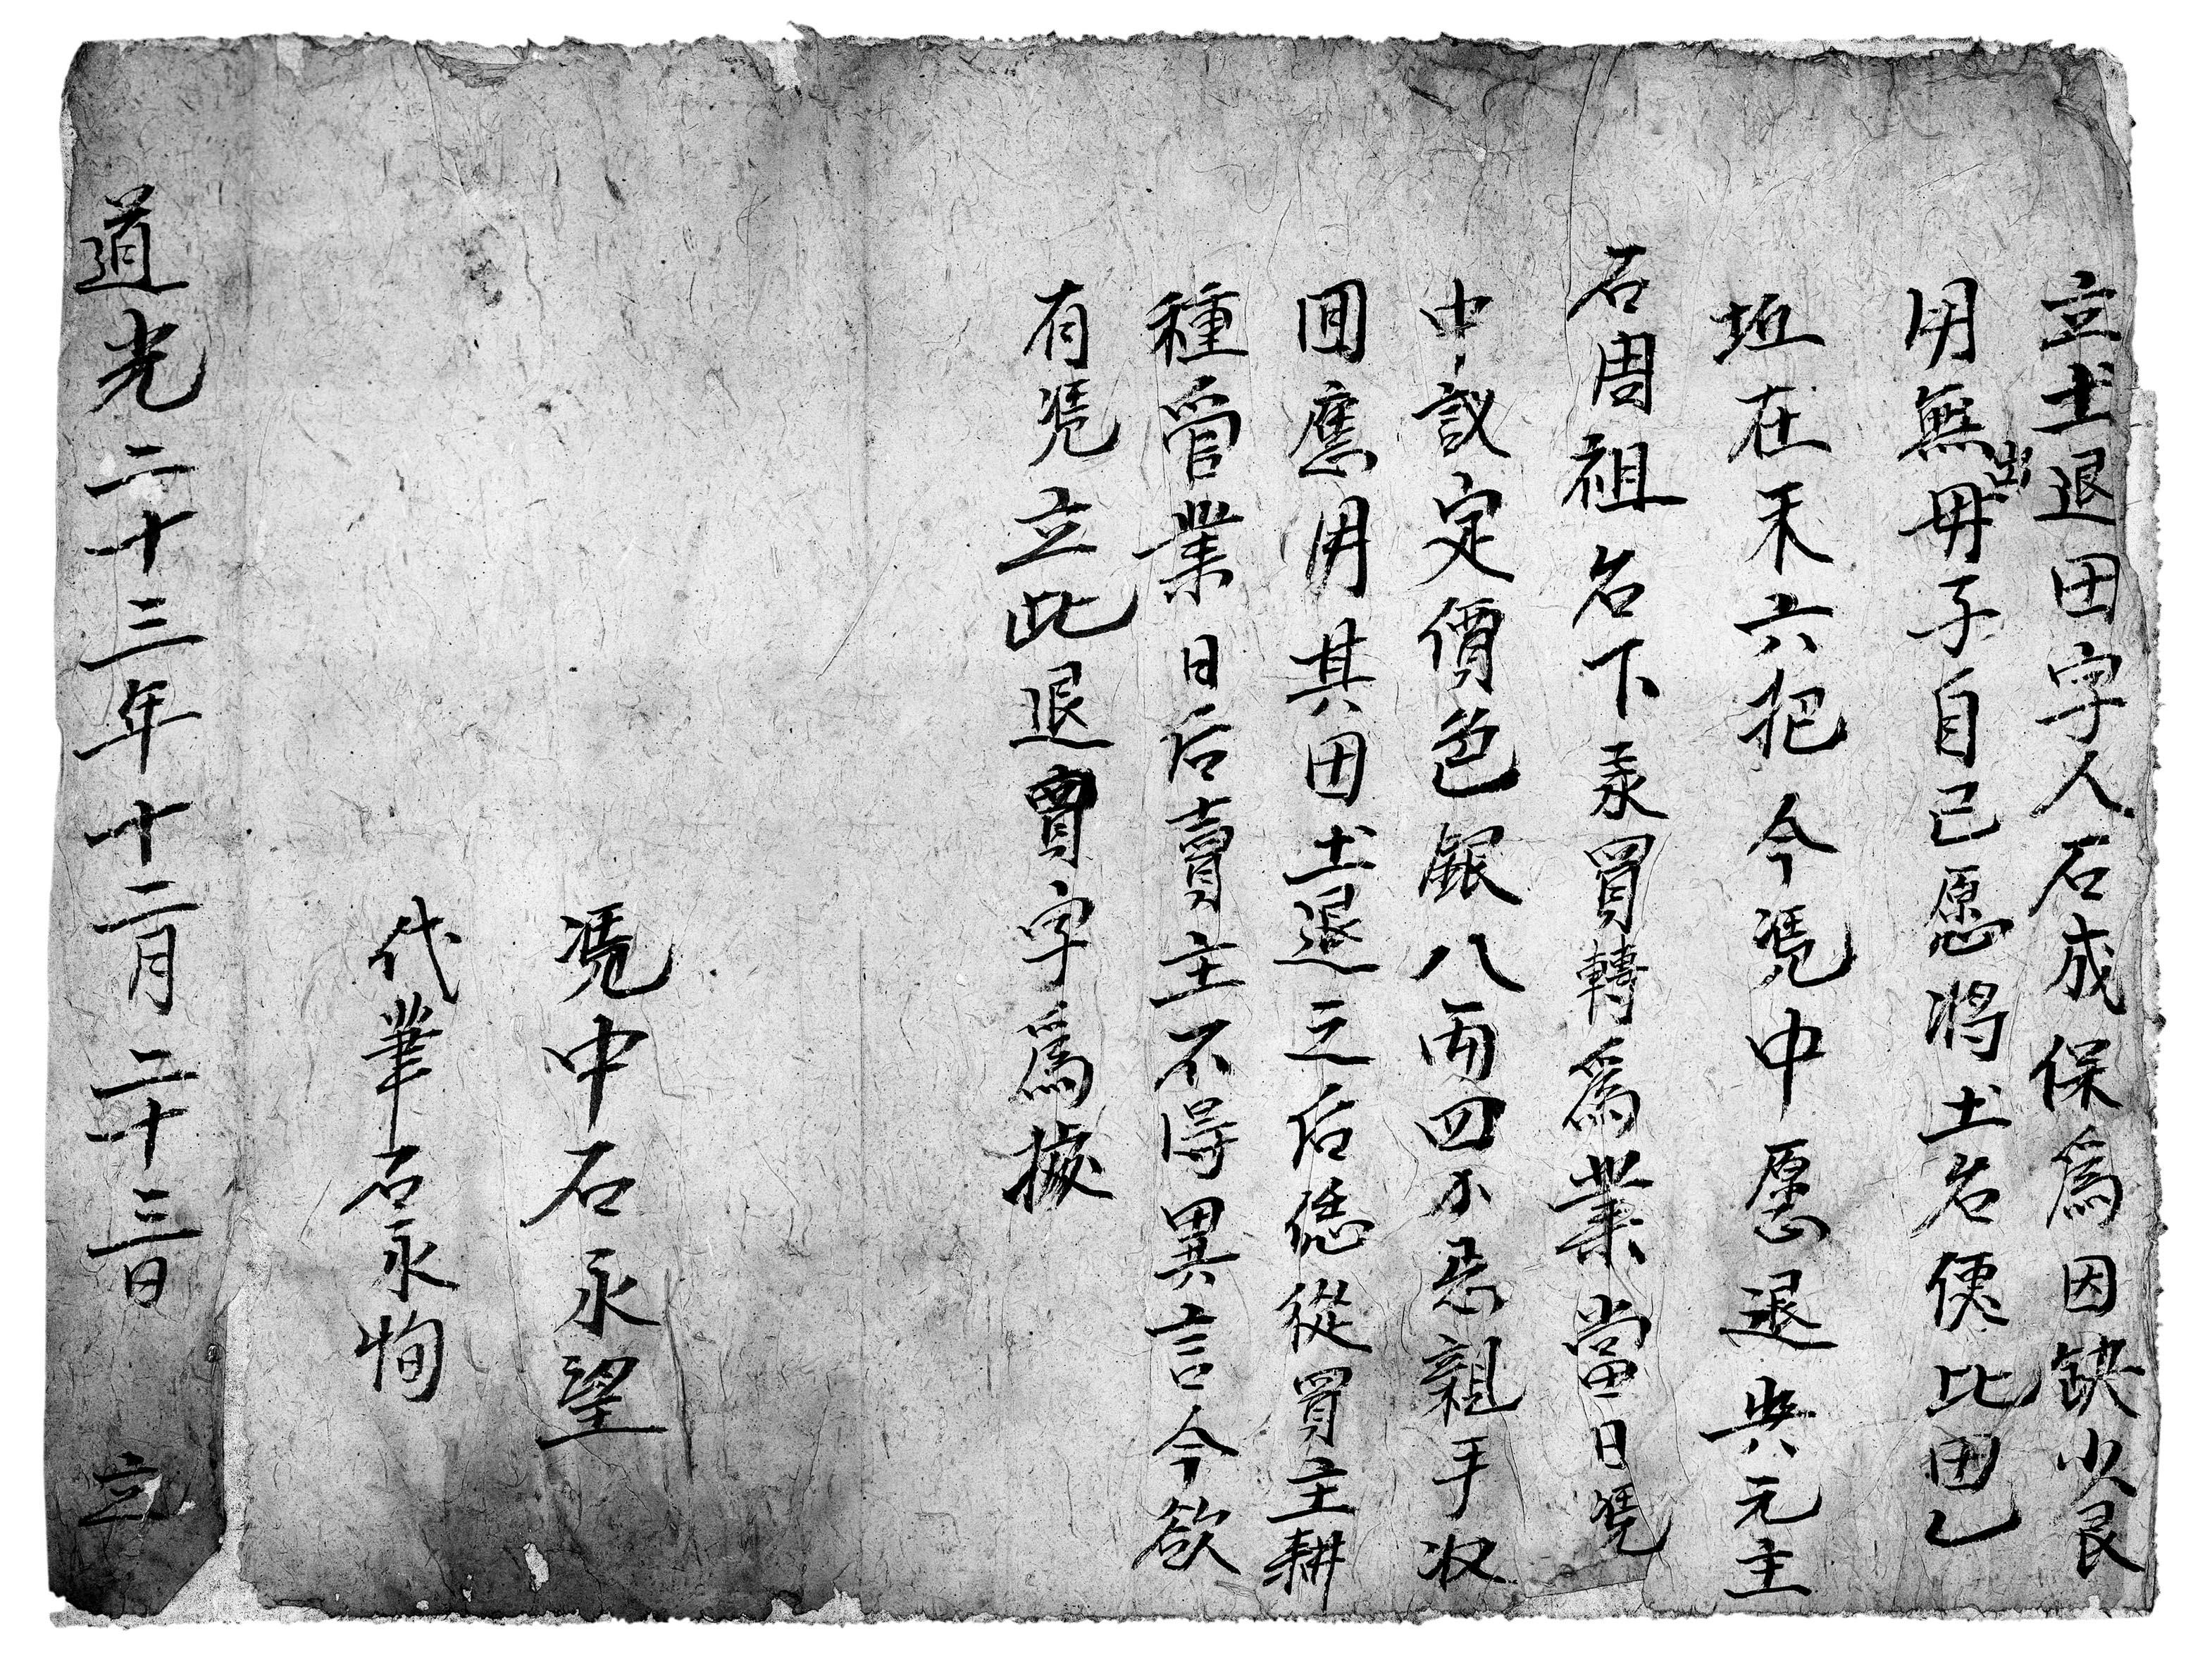 立土退田字人石成保爲因缺少艮
用無出毋子自己愿将土名便比田乚
坵在禾六把今凴中愿退與元主
石周祖名下承買轉爲業當日凴
中議定價色銀八両四卜忍親手収
囬應用其田土退之后恁從買主耕
種管業日后賣主不得異言今欲
有凴立此退賣字爲據
凴中石永望
代筆石永恂
道光二十三年十二月二十三日 立